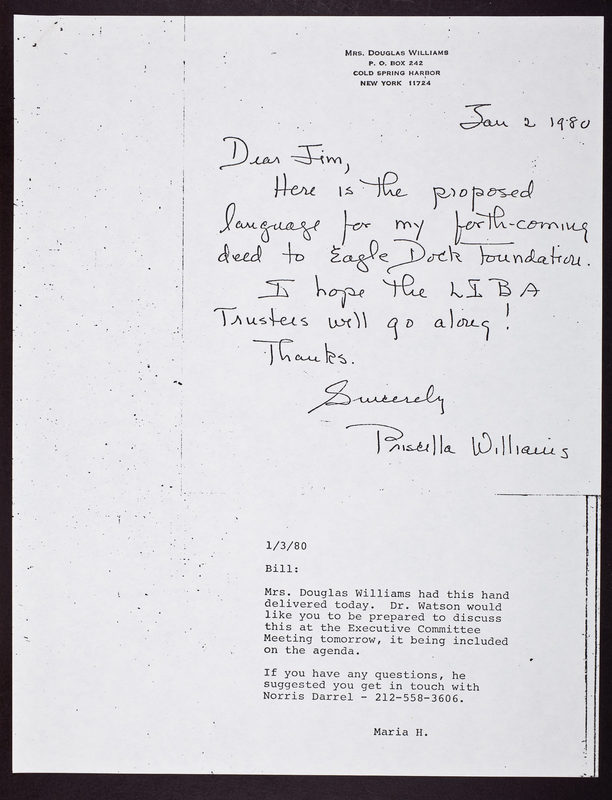 MRS. DOUGLAS WILLIAMS
P. O. BOX 242
COLD SPRING HARBOR
NEW YORK 11724
Jan 2 1980
Dear Jim,
Here is the proposed
language for my forth-coming
deed to Eagle Dock Foundation.
I hope the LIBA
Trustees will go along!
Thanks.
Sincerely
Priscilla Williams
1/3/80
Bill:
Mrs. Douglas Williams had this hand
delivered today. Dr. Watson would
like you to be prepared to discuss
this at the Executive Committee
Meeting tomorrow, it being included
on the agenda.
If you have any questions, he
suggested you get in touch with
Norris Darrel - 212-558-3606.
Maria H.